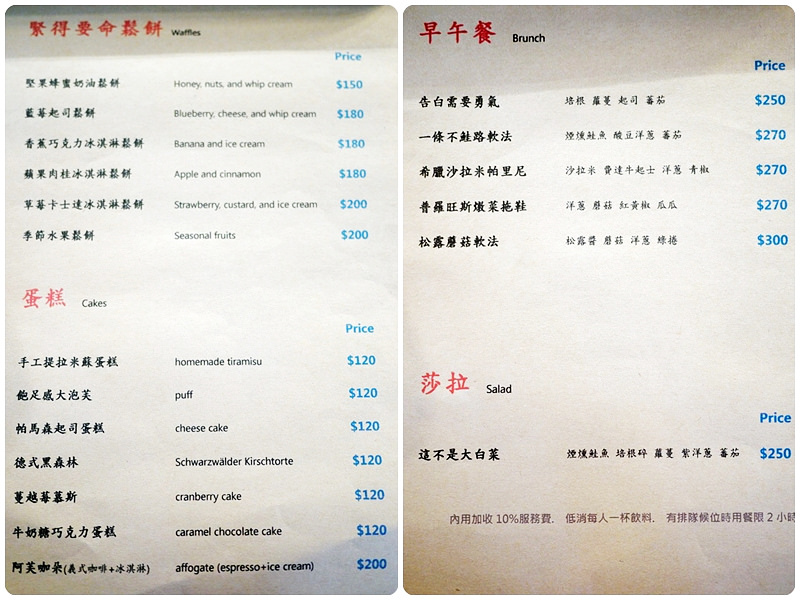 緊得要命鬆餅 Waffles
Price
堅果蜂蜜奶油鬆餅 Honey, nuts, and whip cream $150
藍莓起司鬆餅 Blueberry, cheese, and whip cream $180
香蕉巧克力冰淇淋鬆餅 Banana and ice cream $180
蘋果肉桂冰淇淋鬆餅 Apple and cinnamon $180
草莓卡士達冰淇淋鬆餅 Strawberry, custard, and ice cream $200
季節水果鬆餅 Seasonal fruits $200
蛋糕 Cakes
Price
手工提拉米蘇蛋糕 homemade tiramisu $120
飽足感大泡芙 puff $120
帕馬森起司蛋糕 cheese cake $120
德式黑森林 Schwarzwälder Kirschtorte $120
蔓越莓慕斯 cranberry cake $120
牛奶糖巧克力蛋糕 caramel chocolate cake $120
阿芙咖朵(義式咖啡+冰淇淋) affogate (espresso+ice cream) $200
早午餐 Brunch
Price
告白需要勇氣 培根 蘿蔓 起司 蕃茄 $250
一條不鮭路軟法 煙燻鮭魚 酸豆洋蔥 蕃茄 $270
希臘沙拉米帕里尼 沙拉米 費達牛起士 洋蔥 青椒 $270
普羅旺斯燉菜拖鞋 洋蔥 蘑菇 紅黃椒 瓜瓜 $270
松露蘑菇軟法 松露醬 蘑菇 洋蔥 綠捲 $300
莎拉 Salad
Price
這不是大白菜 煙燻鮭魚 培根碎 蘿蔓 紫洋蔥 蕃茄 $250
內用加收 10%服務費. 低消每人一杯飲料. 有排隊候位時用餐限 2 小時